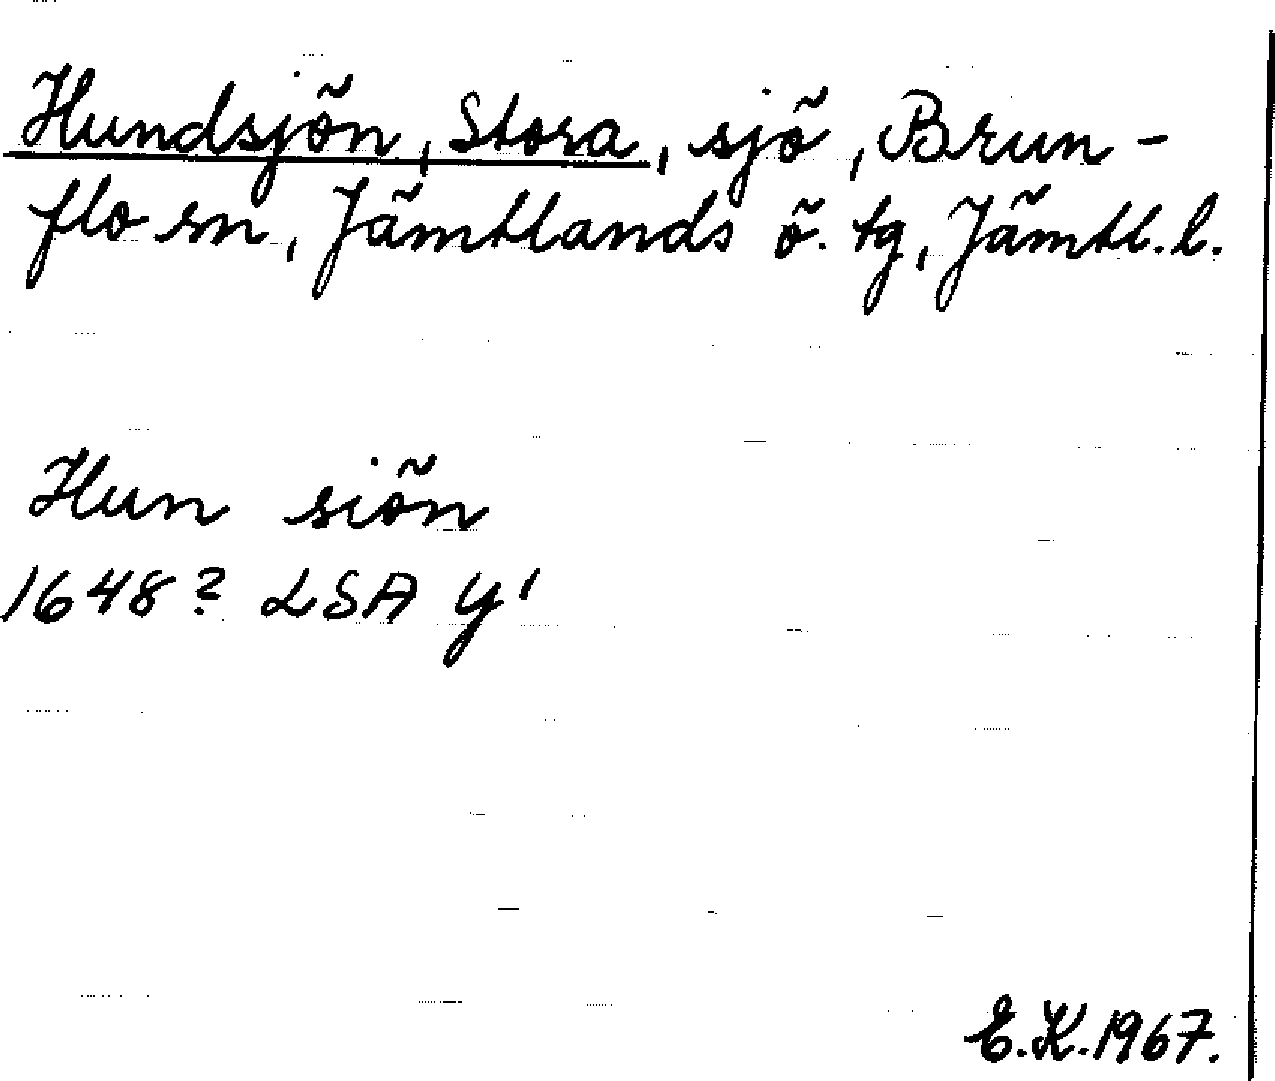 Hundsjön, Stora, sjö, Brun-
flo sn, Jämtlands ö. tg, Jämtl. l.
Hun siön
1648? LSA Y'
E.K. 1967.